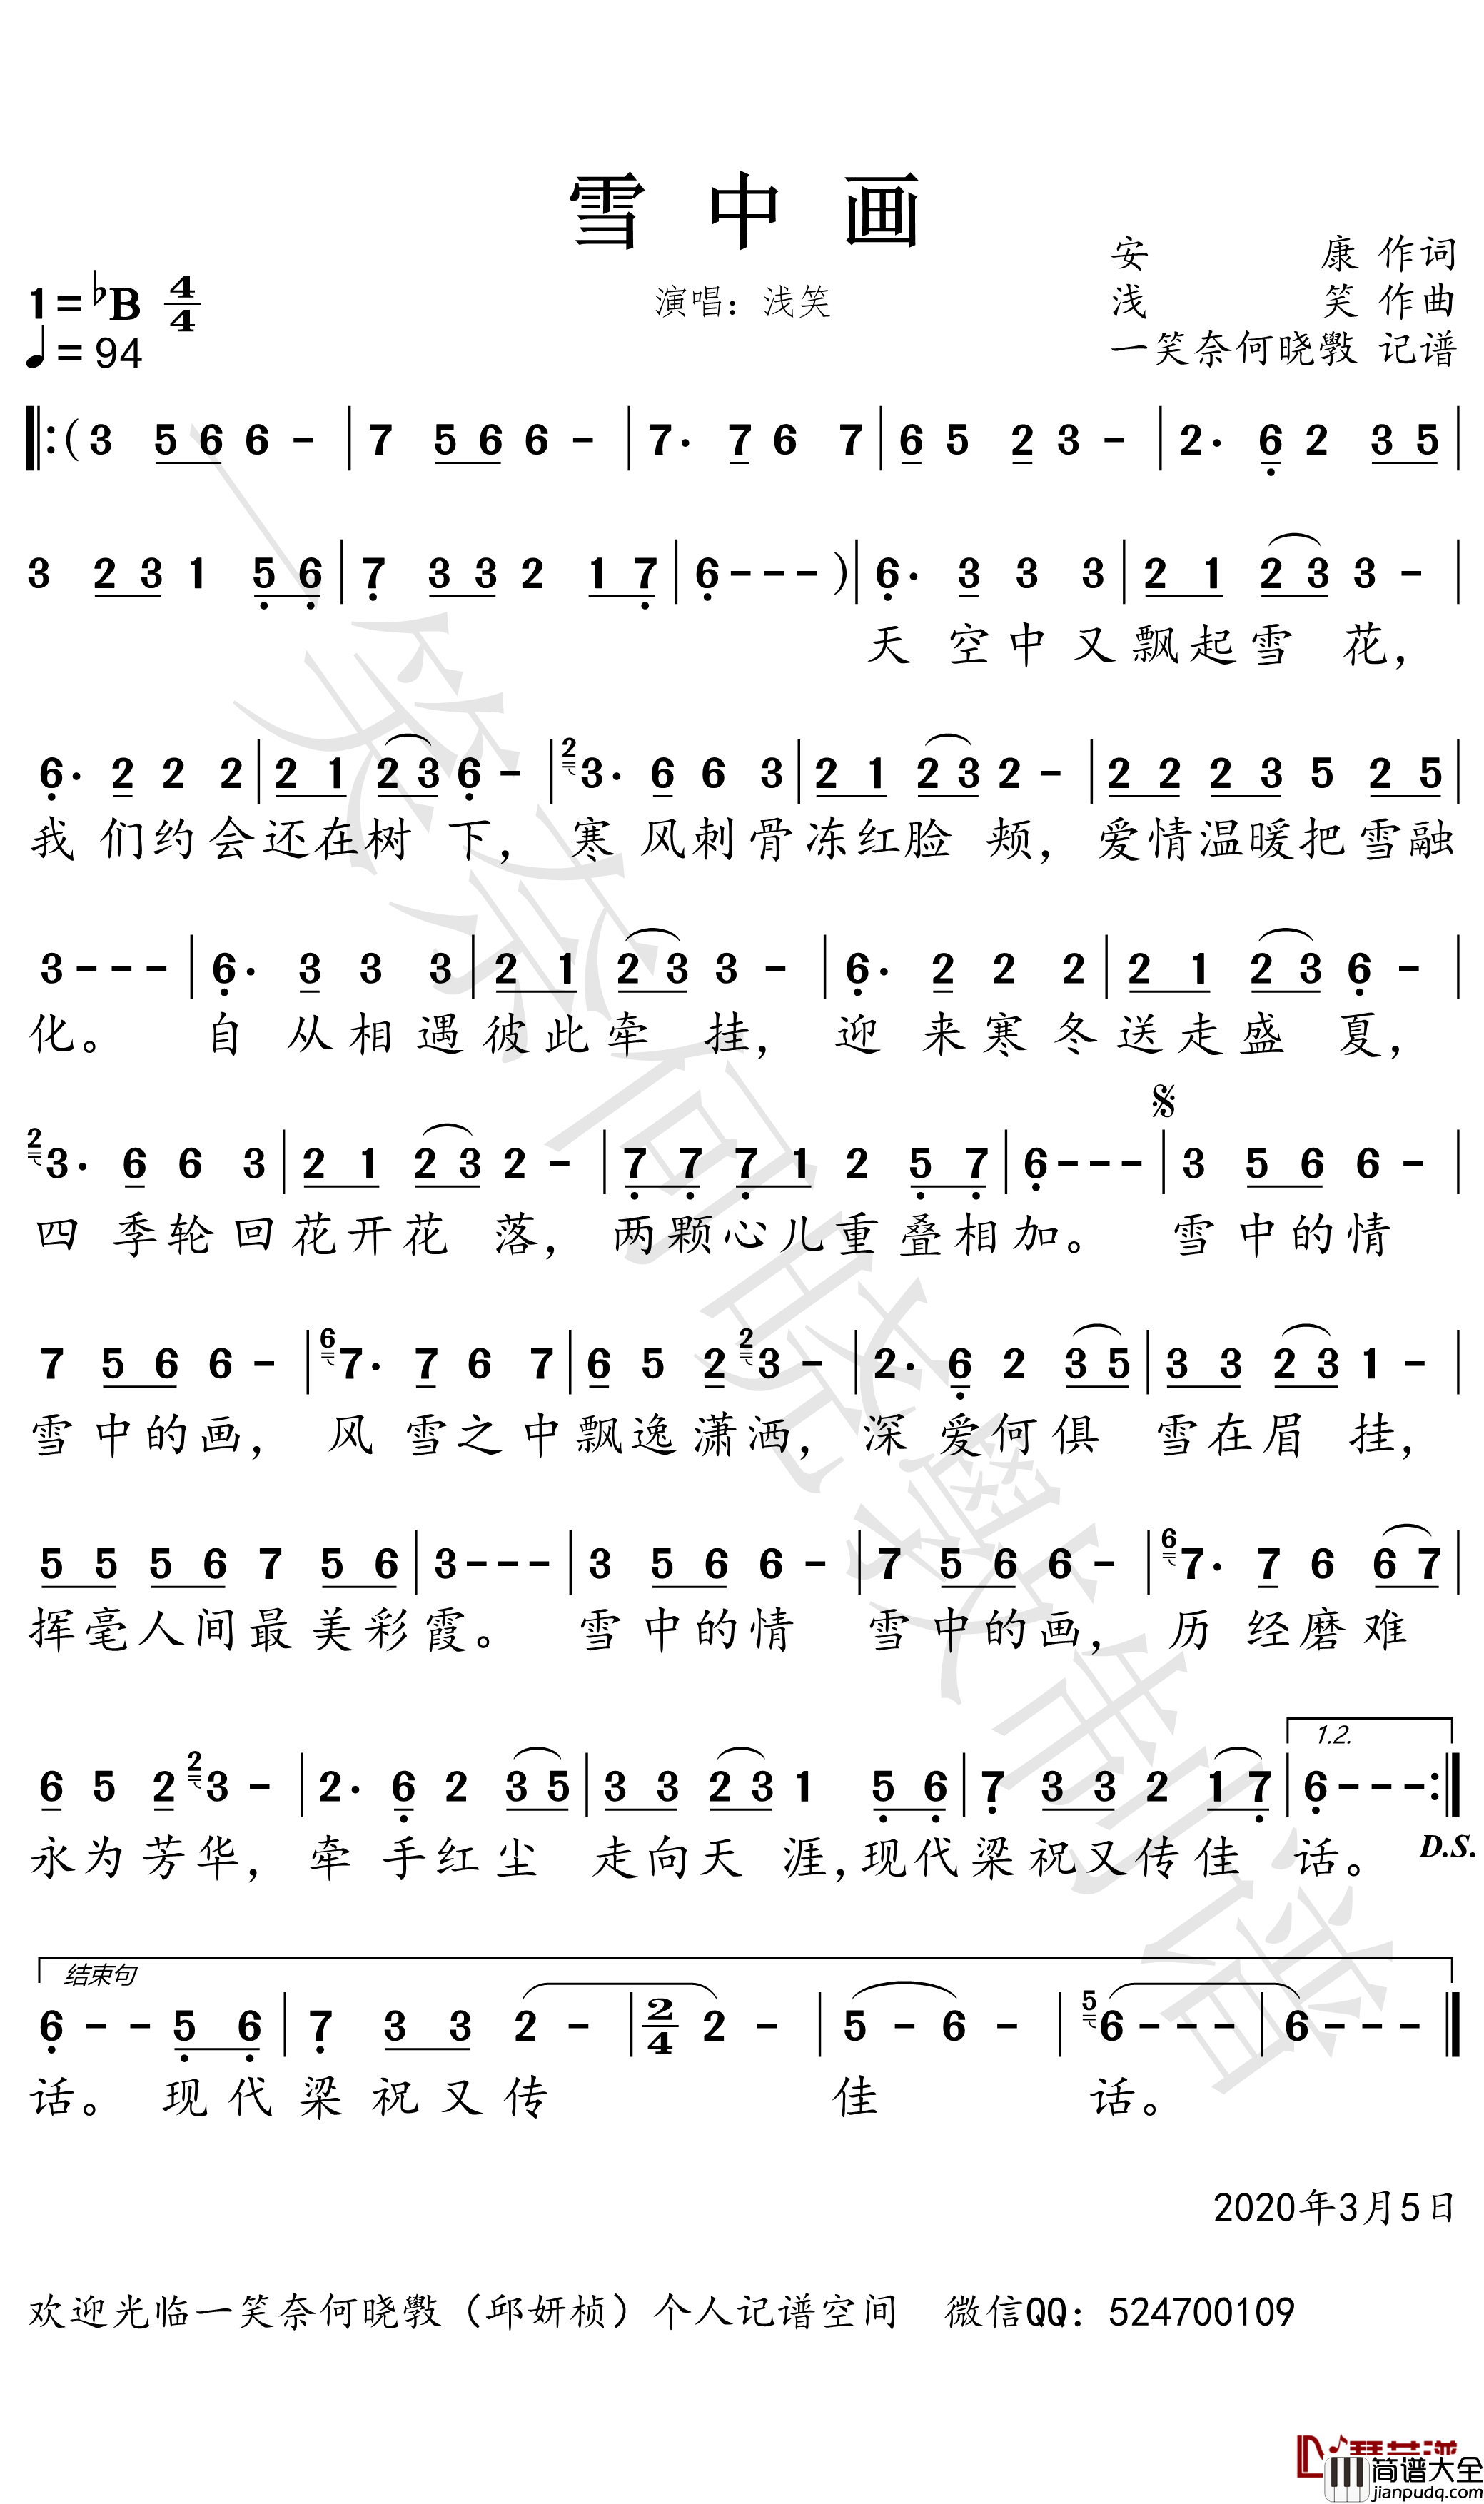 雪中画
安 康 作词
1=♭B 4/4 演唱：浅笑 浅 笑 作曲
♩=94 一笑奈何晓斅 记谱
‖:(3 56 6 - | 7 56 6 - | 7. 7 6 7 | 6 5 2 3 - | 2. 6 2 35 |
3 23 1 56 | 7 33 2 17 | 6 - - - ) | 6. 3 3 3 | 21 23 3 - |
天空中又飘起雪花，
6. 2 2 2 | 21 23 6 - | 2 3. 6 6 3 | 21 23 2 - | 22 23 5 25 |
我们约会还在树下，寒风刺骨冻红脸颊，爱情温暖把雪融
3 - - - | 6. 3 3 3 | 21 23 3 - | 6. 2 2 2 | 21 23 6 - |
化。自从相遇彼此牵挂，迎来寒冬送走盛夏，
2 3. 6 6 3 | 21 23 2 - | 77 71 2 57 | 6 - - - | 3 56 6 - |
四季轮回花开花落，两颗心儿重叠相加。雪中的情
7 56 6 - | 6 7. 7 6 7 | 6 5 2 2 3 - | 2. 6 2 35 | 33 23 1 - |
雪中的画，风雪之中飘逸潇洒，深爱何俱雪在眉挂，
55 56 7 56 | 3 - - - | 3 56 6 - | 7 56 6 - | 6 7. 7 6 67 |
挥毫人间最美彩霞。雪中的情雪中的画，历经磨难
1.2.
6 5 2 2 3 - | 2. 6 2 35 | 33 23 1 56 | 7 33 2 17 | 6 - - - :‖
永为芳华，牵手红尘走向天涯，现代梁祝又传佳话。 D.S.
结束句
6 - - 56 | 7 33 2 - | 2/4 2 - | 5 - 6 - | 5 6 - - - | 6 - - - ‖
话。现代梁祝又传佳话。
2020年3月5日
欢迎光临一笑奈何晓斅（邱妍桢）个人记谱空间 微信QQ：524700109
一笑奈何晓斅制谱
简谱大全
jianpudq.com